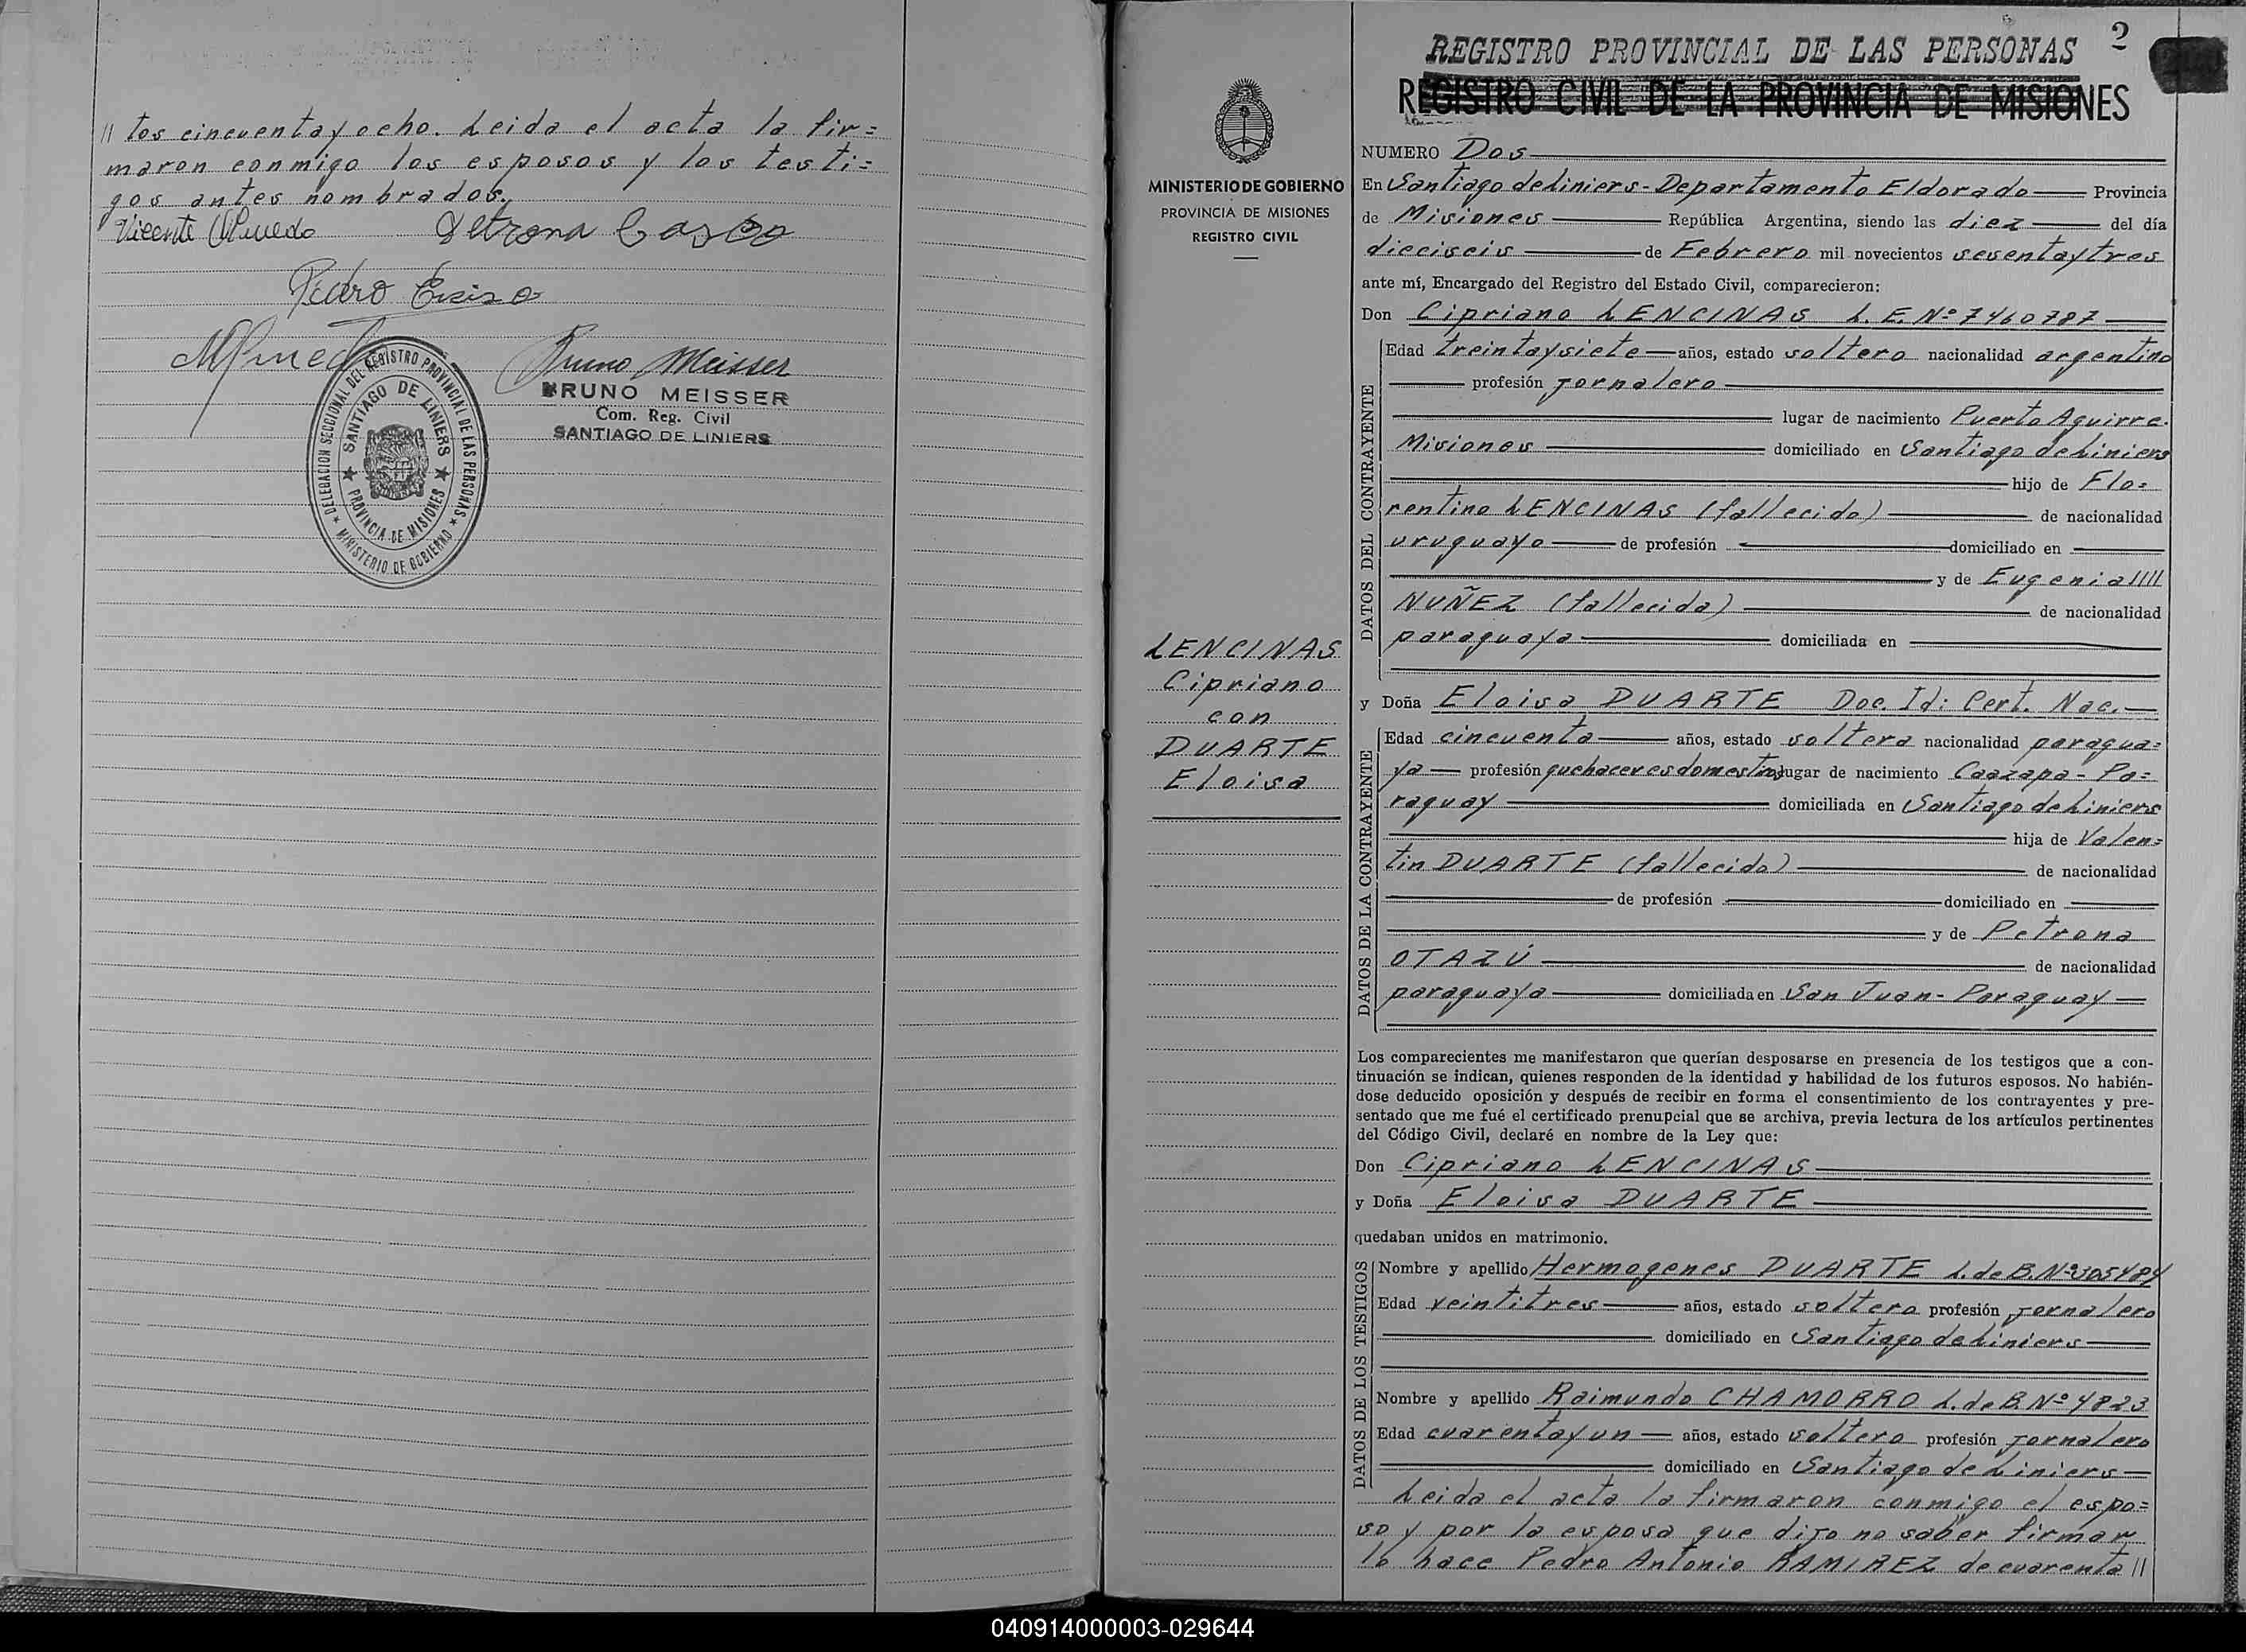 // tos cincuentayocho. Leida el acta la fir=
maron conmigo los esposos y los testi=
gos antes nombrados.
Vicente Petrona Casco
Pedro Enciso
Bruno Meisser
BRUNO MEISSER
Com. Reg. Civil
SANTIAGO DE LINIERS
DELEGACION SECCIONAL DEL REGISTRO PROVINCIAL DE LAS PERSONAS
MINISTERIO DE GOBIERNO
SANTIAGO DE LINIERS
PROVINCIA DE MISIONES
2
REGISTRO PROVINCIAL DE LAS PERSONAS
REGISTRO CIVIL DE LA PROVINCIA DE MISIONES
MINISTERIO DE GOBIERNO
PROVINCIA DE MISIONES
REGISTRO CIVIL
LENCINAS
Cipriano
con
DUARTE
Eloisa
NUMERO Dos
En Santiago de Liniers - Departamento Eldorado Provincia
de Misiones República Argentina, siendo las diez del día
dieciseis de Febrero mil novecientos sesentaytres
ante mí, Encargado del Registro del Estado Civil, comparecieron:
Don Cipriano LENCINAS L. E. Nº 7460787
DATOS DEL CONTRAYENTE
Edad treintaysiete años, estado soltero nacionalidad argentino
profesión jornalero
lugar de nacimiento Puerto Aguirre.
Misiones domiciliado en Santiago de Liniers
hijo de Flo=
rentino LENCINAS (fallecido) de nacionalidad
uruguayo de profesión domiciliado en
y de Eugenia ////
NUÑEZ (fallecida) de nacionalidad
paraguaya domiciliada en
y Doña Eloisa DUARTE Doc. Id: Cert. Nac.
DATOS DE LA CONTRAYENTE
Edad cincuenta años, estado soltera nacionalidad paragua=
ya profesión quehaceres domesticos lugar de nacimiento Caazapa - Pa=
raguay domiciliada en Santiago de Liniers
hija de Valen=
tin DUARTE (fallecido) de nacionalidad
de profesión domiciliado en
y de Petrona
OTAZÚ de nacionalidad
paraguaya domiciliada en San Juan - Paraguay
Los comparecientes me manifestaron que querían desposarse en presencia de los testigos que a con-
tinuación se indican, quienes responden de la identidad y habilidad de los futuros esposos. No habién-
dose deducido oposición y después de recibir en forma el consentimiento de los contrayentes y pre-
sentado que me fué el certificado prenupcial que se archiva, previa lectura de los artículos pertinentes
del Código Civil, declaré en nombre de la Ley que:
Don Cipriano LENCINAS
y Doña Eloisa DUARTE
quedaban unidos en matrimonio.
DATOS DE LOS TESTIGOS
Nombre y apellido Hermogenes DUARTE L. de B. Nº 305484
Edad veintitres años, estado soltero profesión jornalero
domiciliado en Santiago de Liniers
Nombre y apellido Raimundo CHAMORRO L. de B. Nº 4823
Edad cuarentayun años, estado soltero profesión jornalero
domiciliado en Santiago de Liniers
Leida el acta la firmaron conmigo el espo=
so y por la esposa que dijo no saber firmar
lo hace Pedro Antonio RAMIREZ de cuarenta //
040914000003-029644